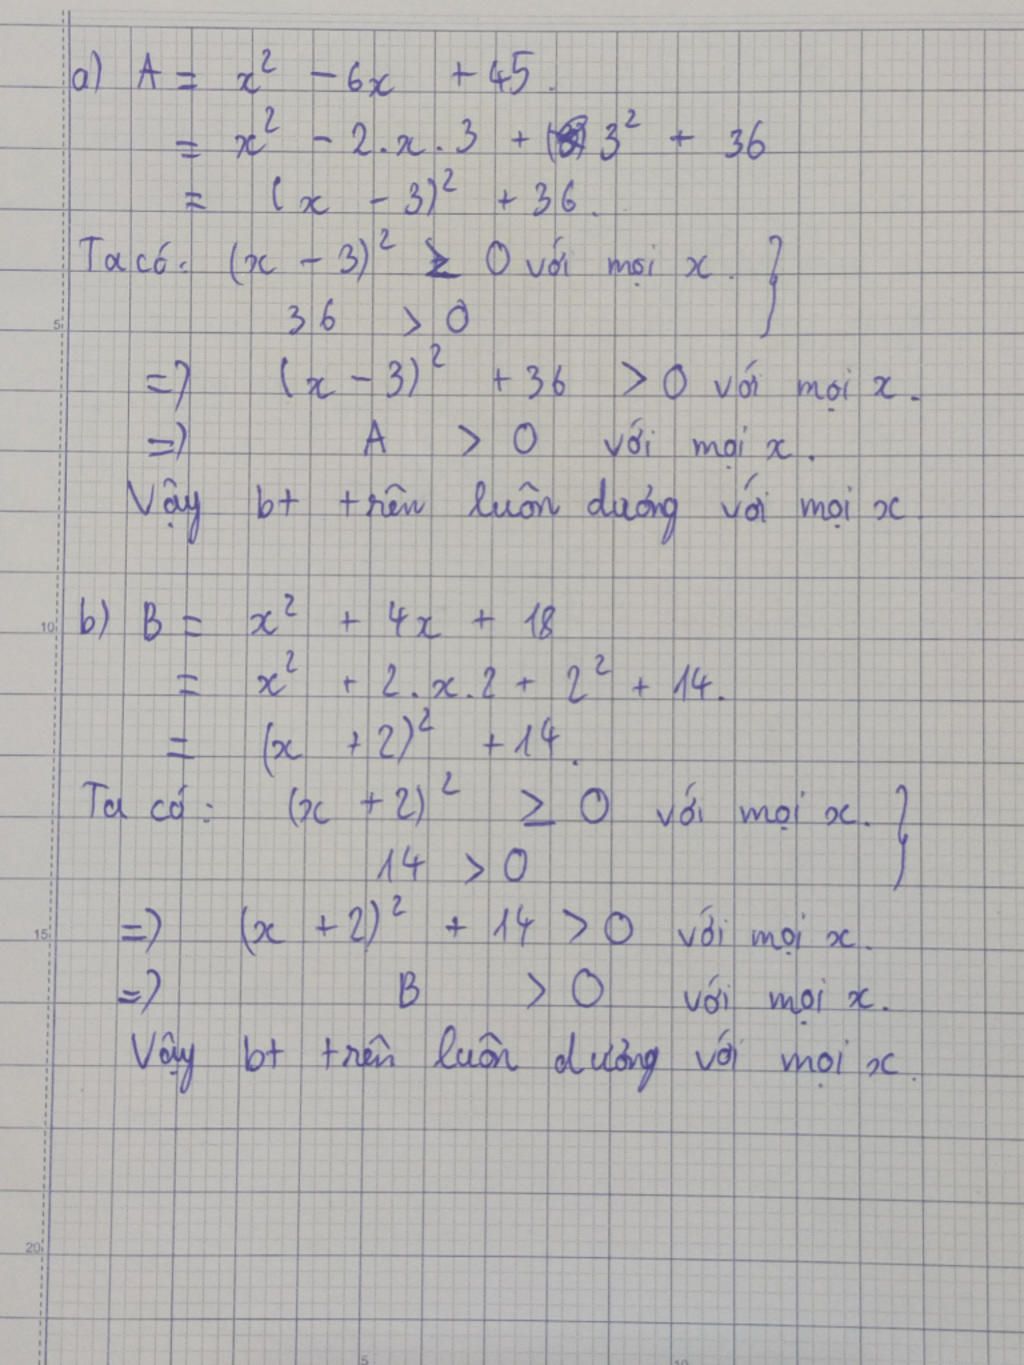 a) A = x² - 6x + 45.
= x² - 2.x.3 + 3² + 36
= (x - 3)² + 36.
Ta có: (x - 3)² ≥ 0 với mọi x. }
5
36 > 0
=> (x - 3)² + 36 > 0 với mọi x.
=> A > 0 với mọi x.
Vậy bt trên luôn dương với mọi x.
10
b) B = x² + 4x + 18
= x² + 2.x.2 + 2² + 14.
= (x + 2)² + 14.
Ta có: (x + 2)² ≥ 0 với mọi x. }
14 > 0
15
=> (x + 2)² + 14 > 0 với mọi x.
=> B > 0 với mọi x.
Vậy bt trên luôn dương với mọi x.
20
5 10